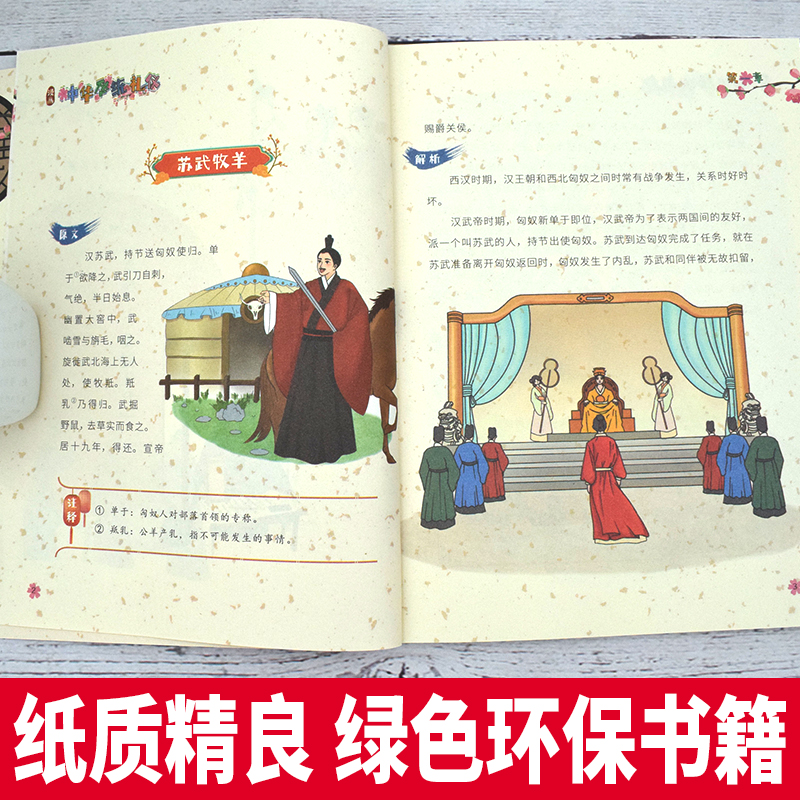 苏武牧羊
原文
汉苏武，持节送匈奴使归。单
于①欲降之，武引刀自刺，
气绝，半日始息。
幽置大窖中，武
啮雪与旃毛，咽之。
旋徙武北海上无人
处，使牧羝。羝
乳②乃得归。武掘
野鼠，去草实而食之。
居十九年，得还。宣帝
注释
① 单于：匈奴人对部落首领的专称。
② 羝乳：公羊产乳，指不可能发生的事情。
2
第一章
赐爵关侯。
解析
西汉时期，汉王朝和西北匈奴之间时常有战争发生，关系时好时
坏。
汉武帝时期，匈奴新单于即位，汉武帝为了表示两国间的友好，
派一个叫苏武的人，持节出使匈奴。苏武到达匈奴完成了任务，就在
苏武准备离开匈奴返回时，匈奴发生了内乱，苏武和同伴被无故扣留，
3
纸质精良 绿色环保书籍